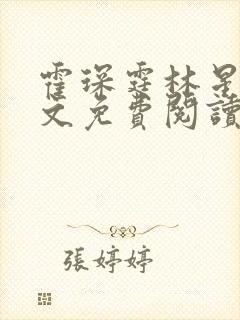 霍琛霆林星
文免費閱讀
張婷婷